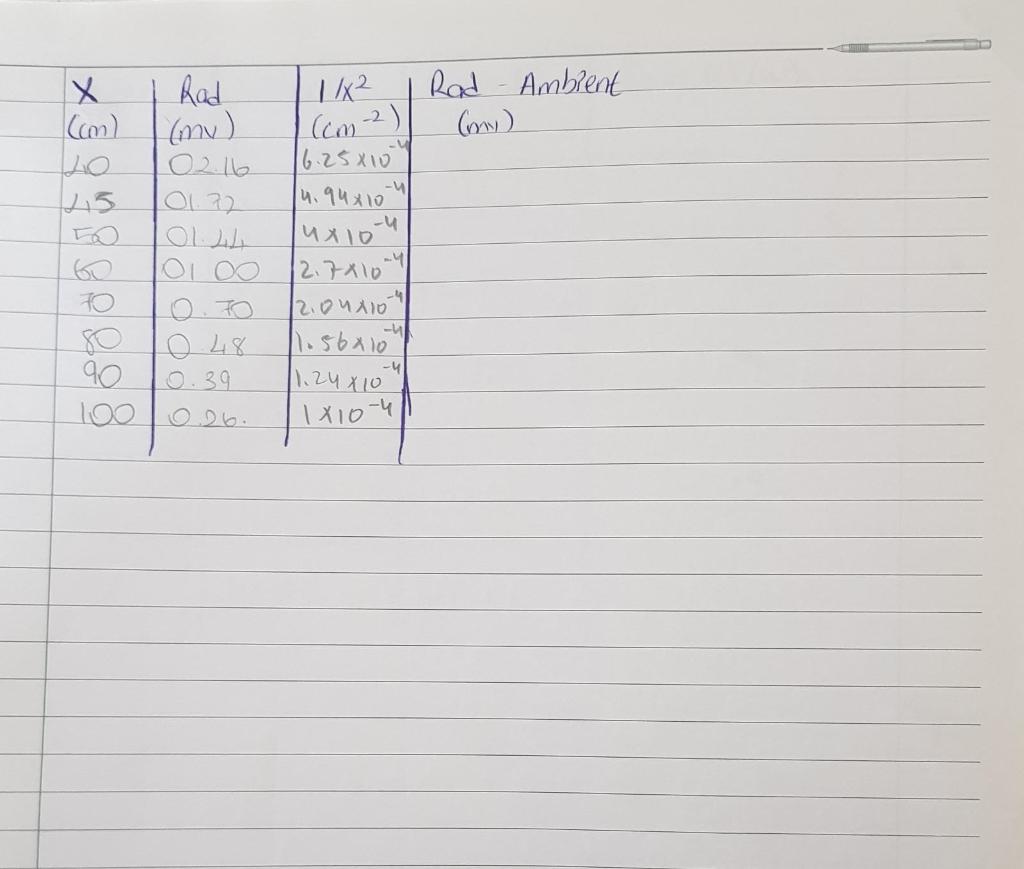 X Rad 1/x² Rad - Ambient
(cm) (mv) (cm⁻²) (mv)
40 02.16 6.25x10⁻⁴
45 01.72 4.94x10⁻⁴
50 01.44 4x10⁻⁴
60 01 00 2.7x10⁻⁴
70 0.70 2.04x10⁻⁴
80 0 48 1.56x10⁻⁴
90 0.39 1.24x10⁻⁴
100 0.26. 1x10⁻⁴